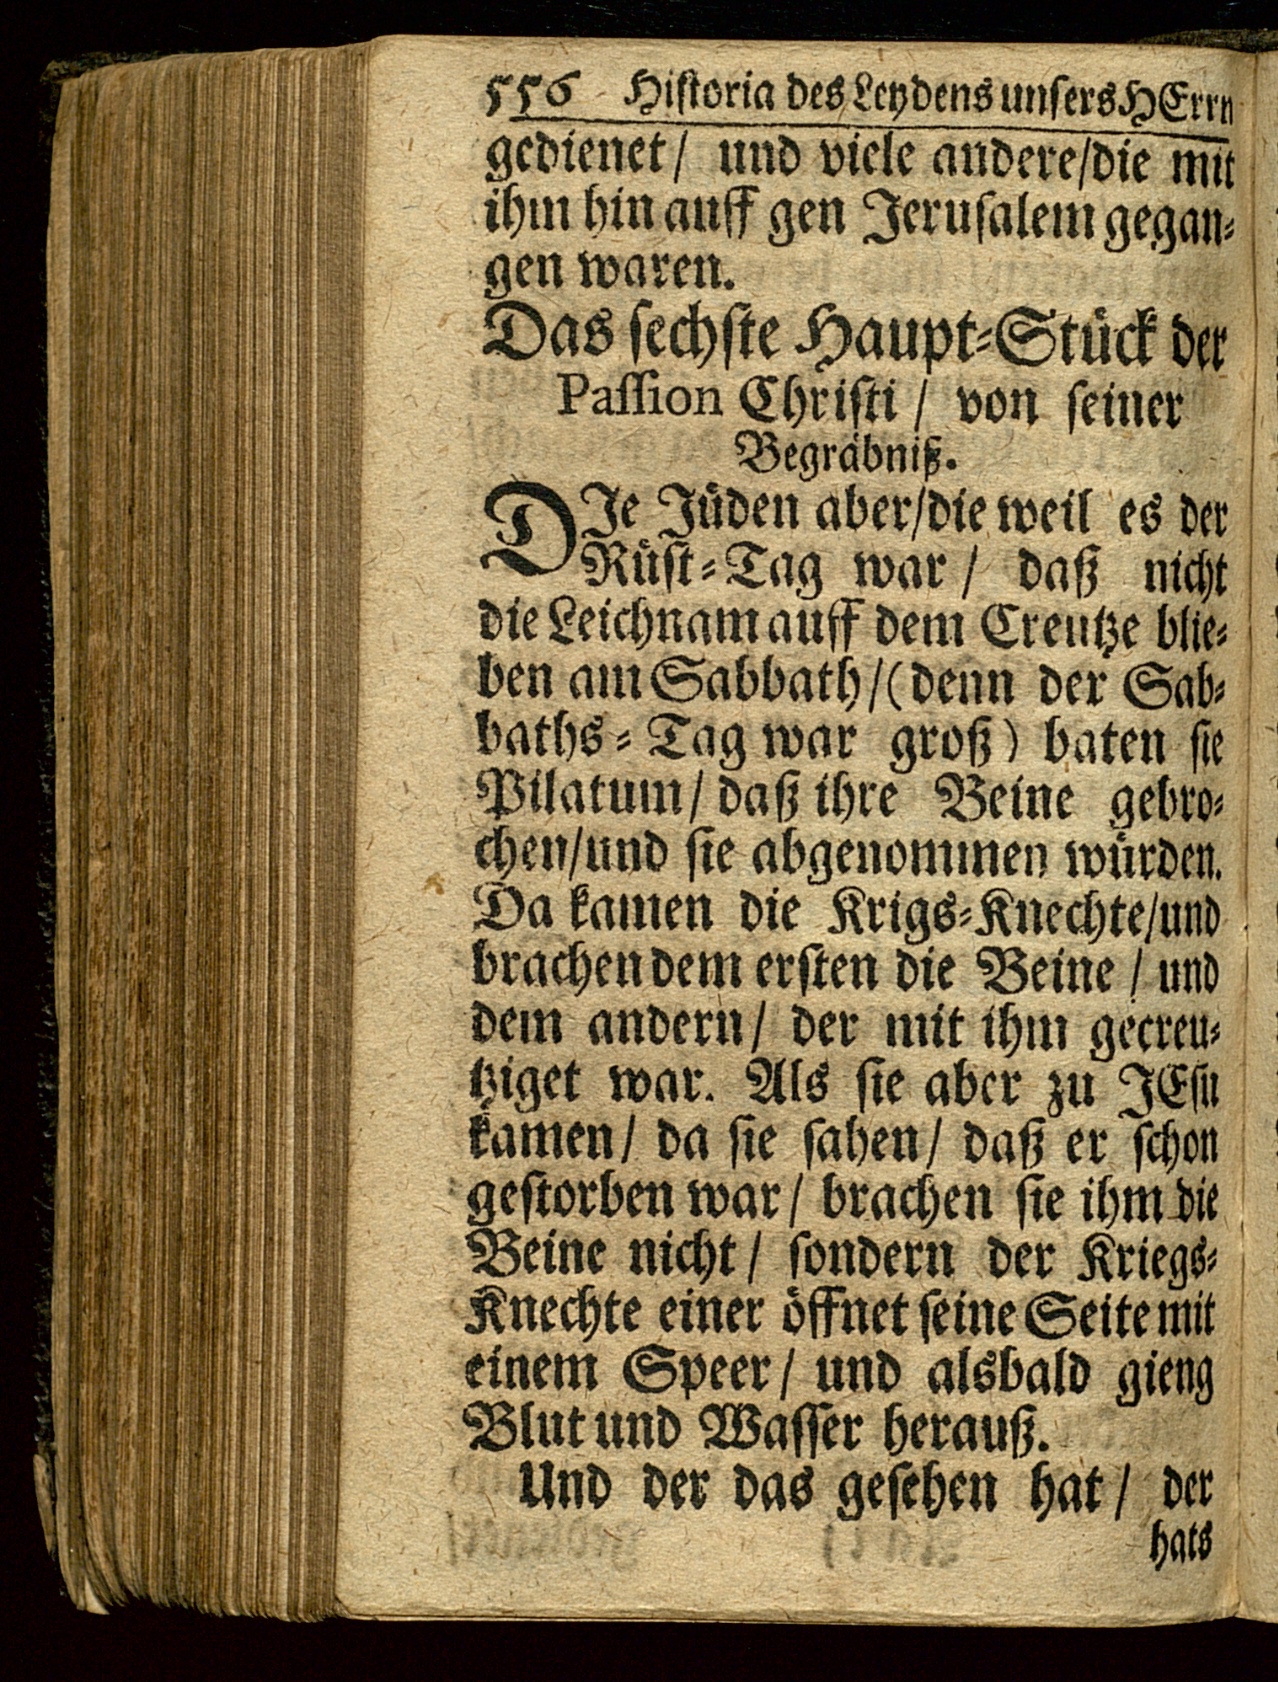 556 Hiſtoria des Leydens unſers HErrn
gedienet/ und viele andere/die mit
ihm hin auff gen Jeruſalem gegan⸗
gen waren.
Das ſechſte Haupt⸗Stück der
Paſſion Chriſti / von ſeiner
Begräbniß.
DJe Jüden aber/die weil es der
Rüſt⸗Tag war / daß nicht
die Leichnam auff dem Creutze blie⸗
ben am Sabbath/(denn der Sab⸗
baths⸗Tag war groß) baten ſie
Pilatum/ daß ihre Beine gebro⸗
chen/und ſie abgenommen würden.
Da kamen die Krigs⸗Knechte/und
brachen dem erſten die Beine / und
dem andern/ der mit ihm gecreu⸗
tziget war. Als ſie aber zu JEſu
kamen/ da ſie ſahen/ daß er ſchon
geſtorben war/ brachen ſie ihm die
Beine nicht/ ſondern der Kriegs⸗
Knechte einer öffnet ſeine Seite mit
einem Speer/ und alsbald gieng
Blut und Waſſer herauß.
Und der das geſehen hat/ der
hats